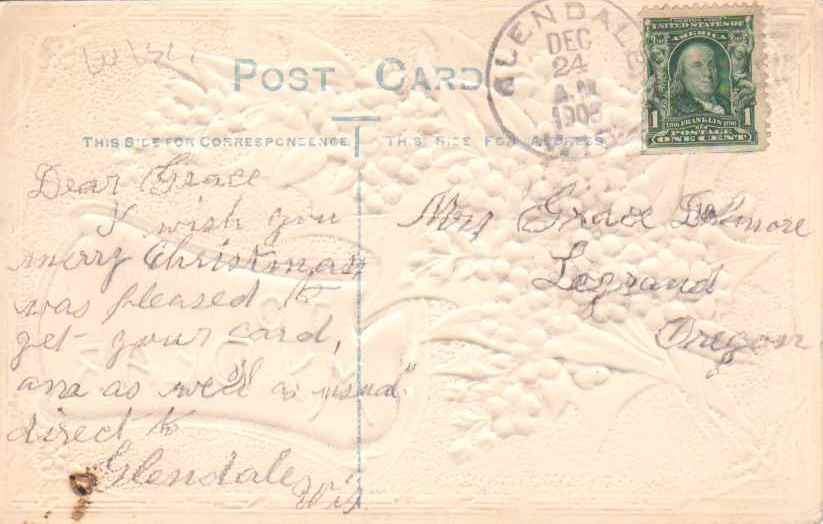 POST CARD
THIS SIDE FOR CORRESPONDENCE
THIS SIDE FOR ADDRESS
GLENDALE
DEC
24
A.M.
UNITED STATES OF
AMERICA
1 FRANKLIN 1
POSTAGE
ONE CENT
Dear Grace
I wish you
merry Christmas
was pleased to
get your card,
am as well as usual
direct to
Glendale
Wis
Mrs Grace
Legrand
Oregon